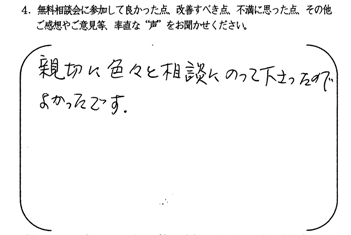 4. 無料相談会に参加して良かった点、改善すべき点、不満に思った点、その他
ご感想やご意見等、率直な“声”をお聞かせください。
親切に色々と相談にのって下さったので
よかったです.